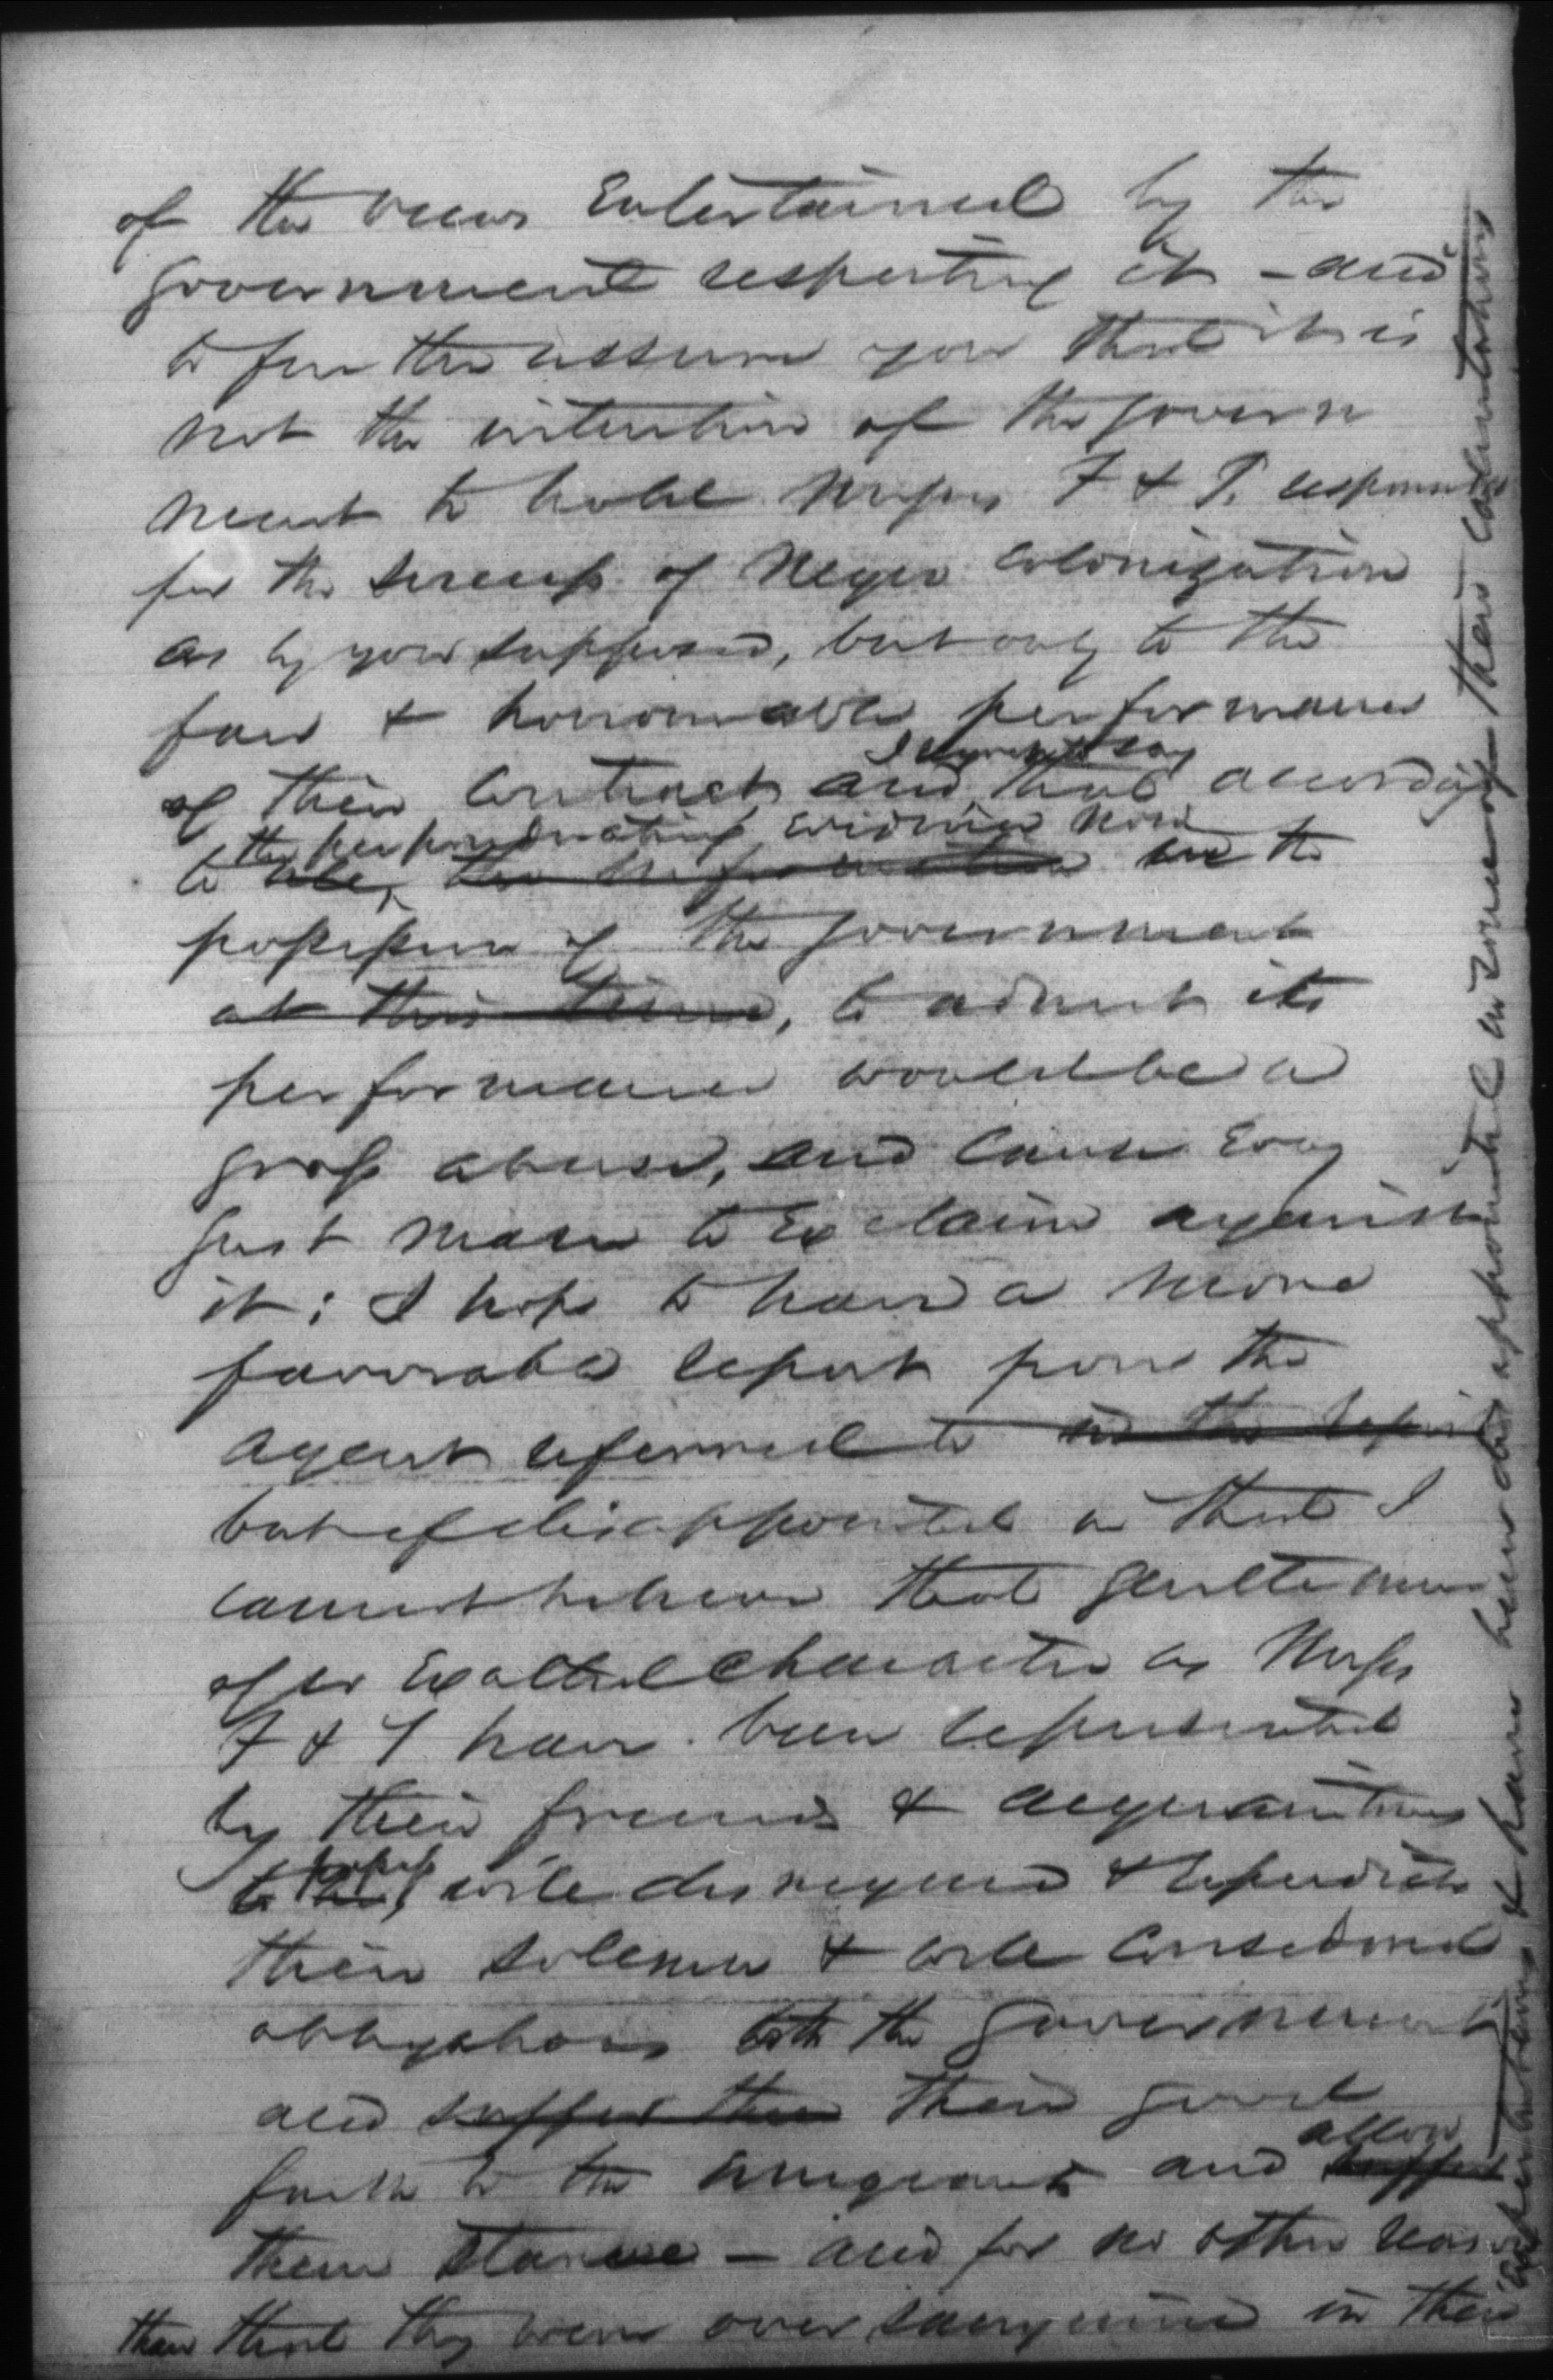 of the views Entertained by the
government respecting it - and
to further assure you that it is
not the intention of the govern
ment to hold Messrs F & T. responsible
for the success of Negro Colonization
as by you supposed, but only to the
fair & honorable performance
of their Contract and I regret to say that according
to the preponderating evidence now in the
possession of the government
at this time, to admit its
performance would be a
gross abuse, and cause Every
just man to Exclaim against
it: I hope to have a more
favorable report from the
agent referred to in the
but if disappointed in that I
cannot believe that gentlemen
of so Exalted character as Messrs
F & T have been represented
by their friends & acquaintances
to possess, will disregard & repudiate
their solemn & well considered
obligations with the government
and suffer their good
faith to the Emigrants and allow suffer
them starve - and for no other reason
than that they were over sanguine in their
expectations & have been disappointed in some of their calculations